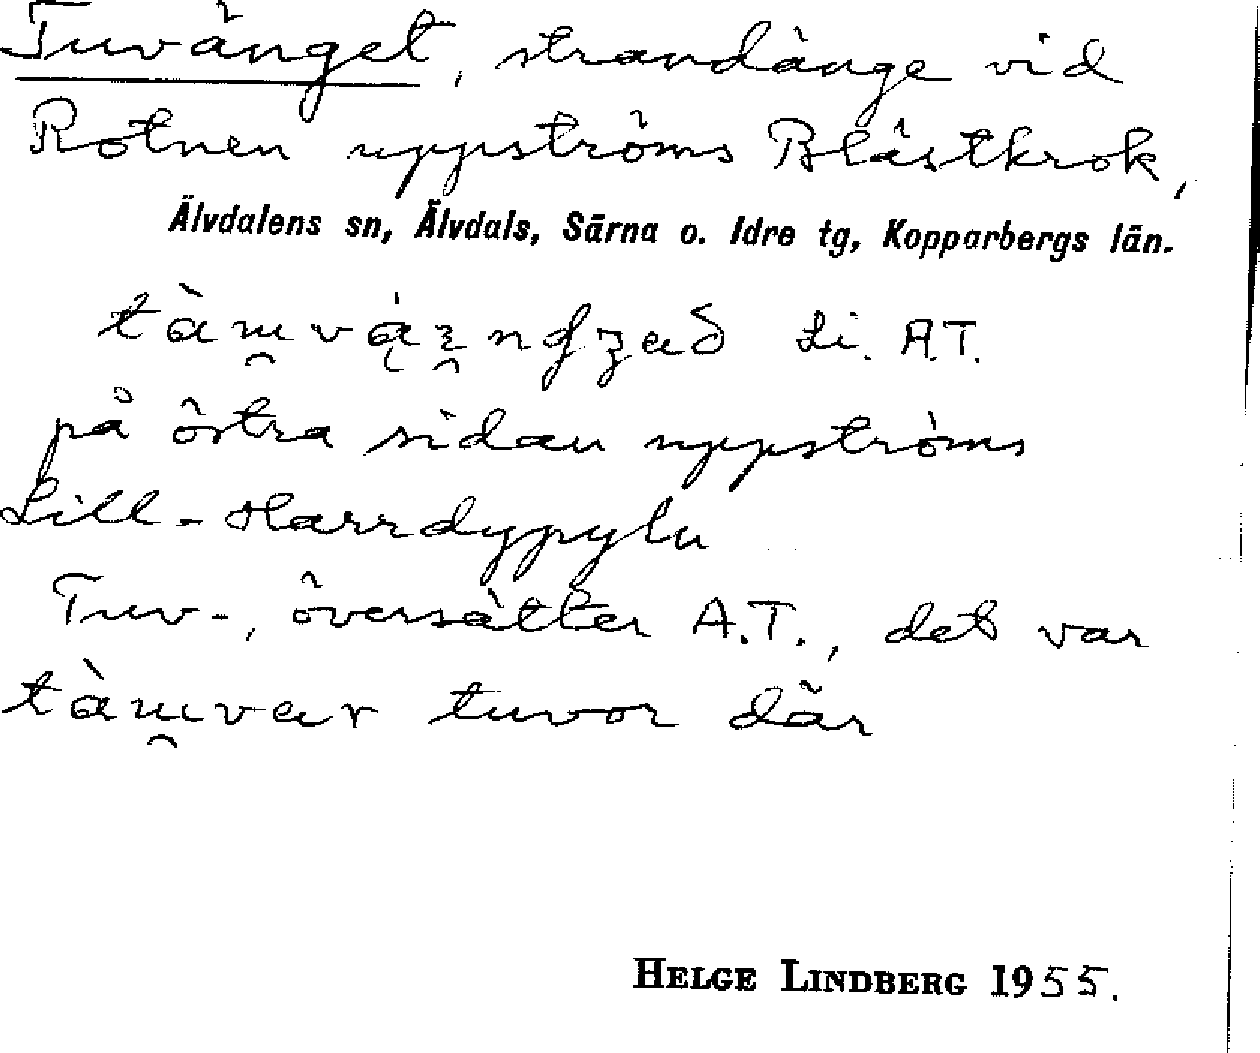 Tuvänget, strandänge vid
Rotnen uppströms Blästkrok,
Älvdalens sn, Älvdals, Särna o. Idre tg, Kopparbergs län.
Li. A.T.
på östra sidan uppströms
Lill-Harrdypylu
Tuv-, översätter A.T., det var
tuvor där
HELGE LINDBERG 1955.